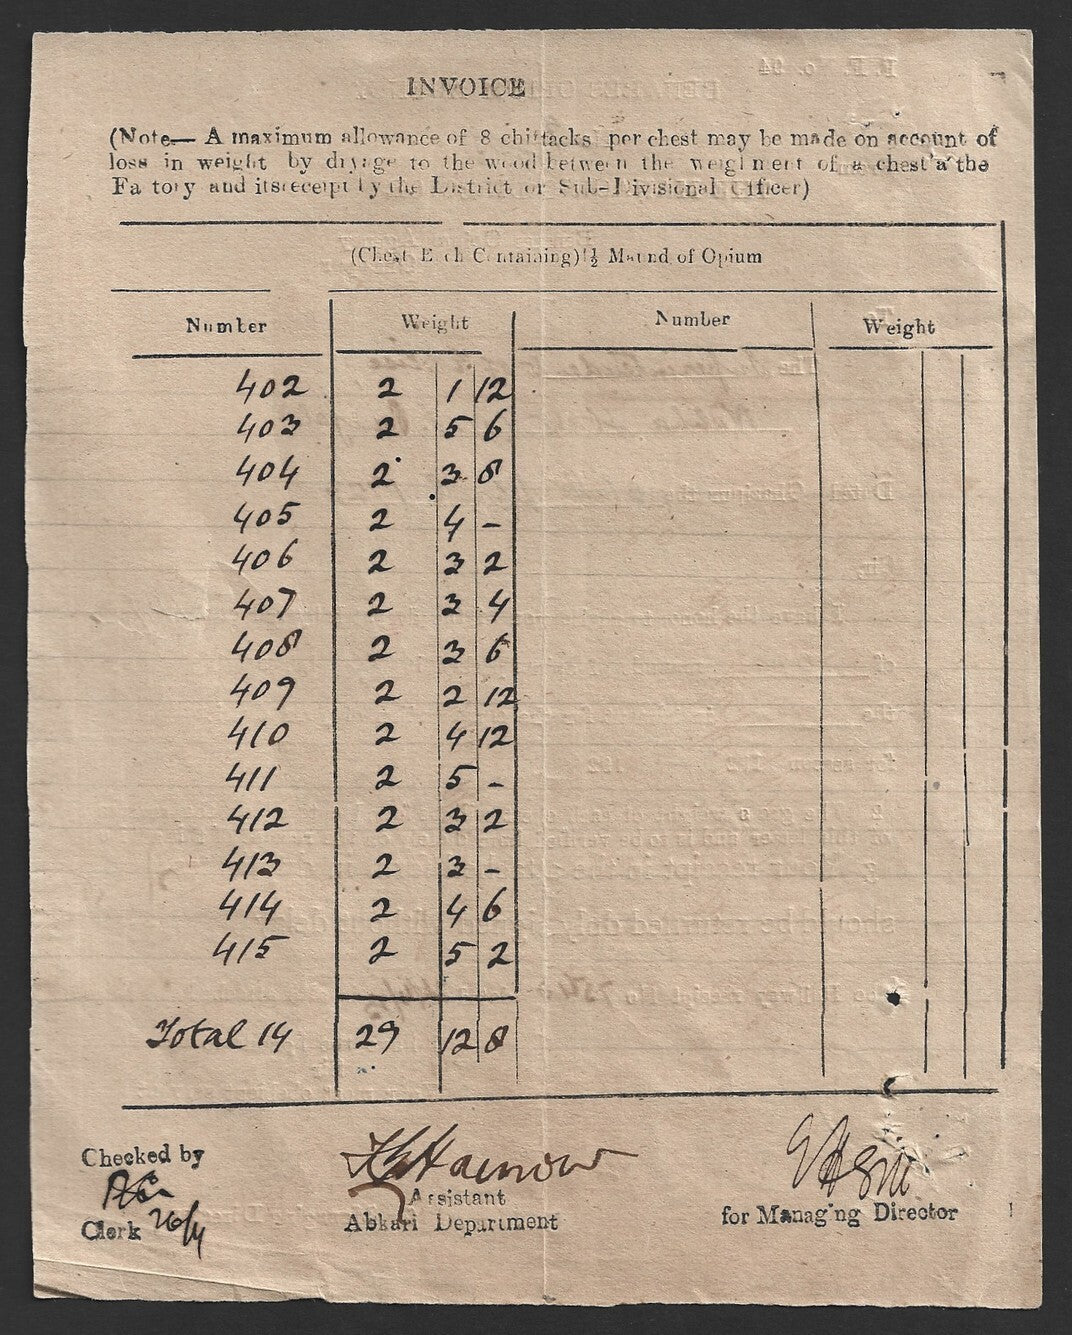 INVOICE
(Note— A maximum allowance of 8 chittacks per chest may be made on account of
loss in weight by dryage to the wood between the weighment of a chest a' the
Fa tory and its receipt by the District or Sub-Divisional Officer)
(Chest E ch C ntaining) 1½ Maund of Opium
Number Weight Number Weight
402 2 1 12
403 2 5 6
404 2 3 8
405 2 4 -
406 2 3 2
407 2 3 4
408 2 3 6
409 2 2 12
410 2 4 12
411 2 5 -
412 2 3 2
413 2 3 -
414 2 4 6
415 2 5 2
Total 14 29 12 8
Checked by
Clerk 26/4
Assistant
Abkari Department
for Manag'ng Director